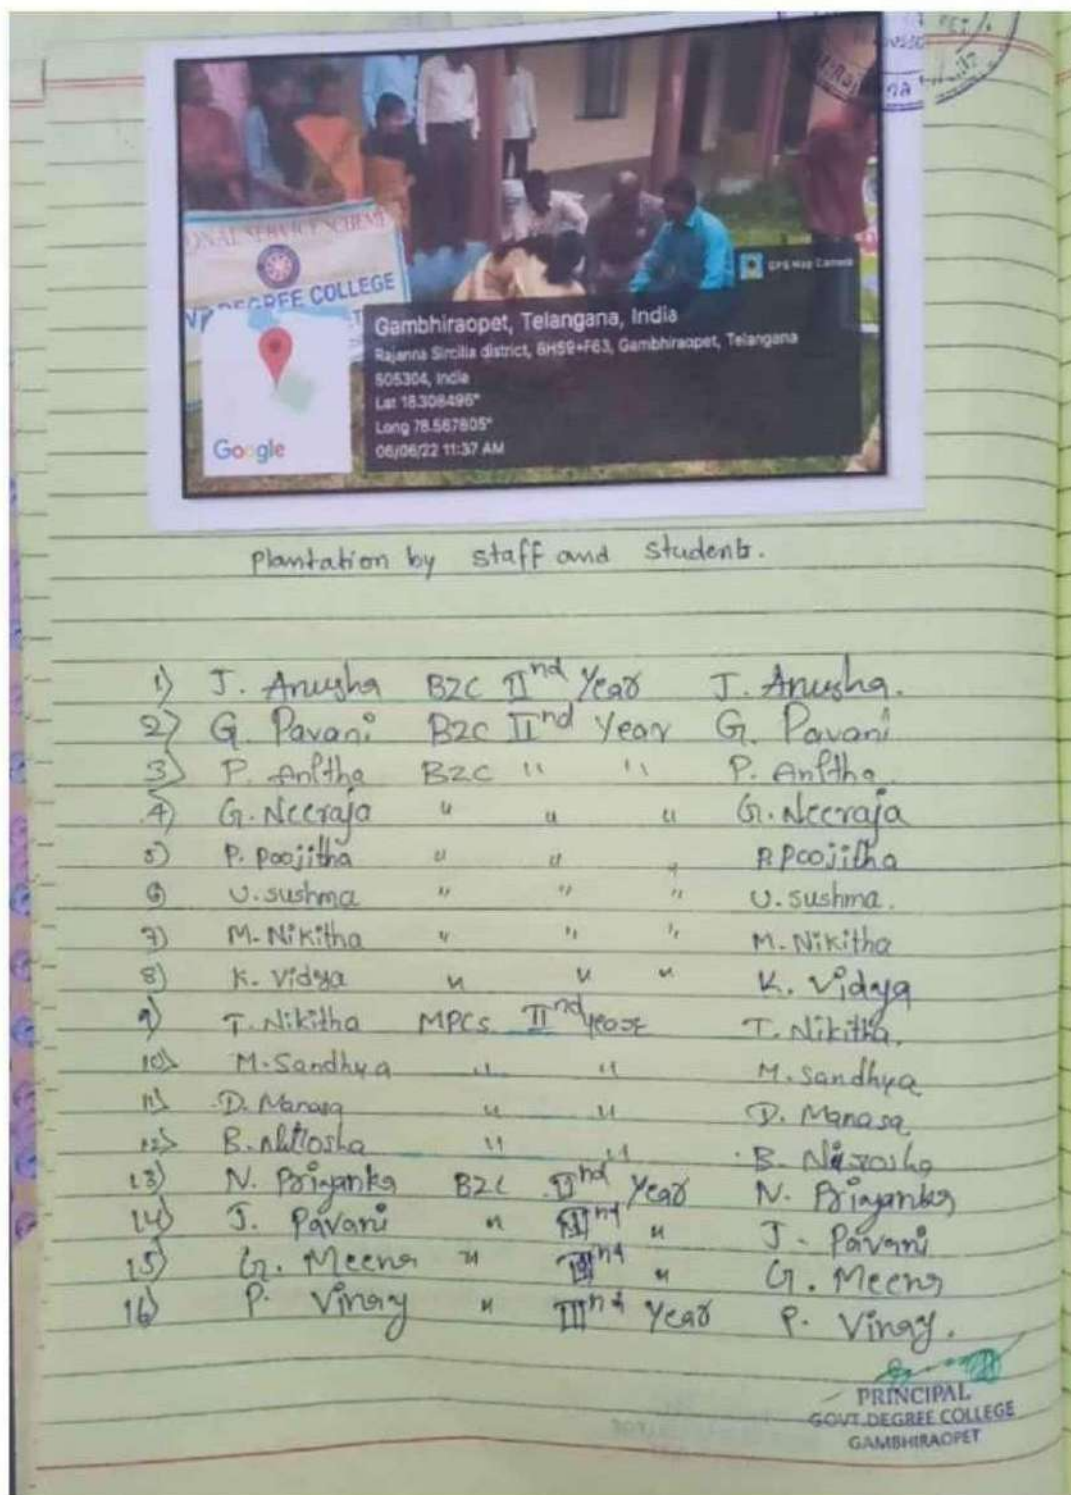 ONAL SERVICE SCHEME
DEGREE COLLEGE
GPS Map Camera
Gambhiraopet, Telangana, India
Rajanna Sircilla district, 8H59+F63, Gambhiraopet, Telangana
505304, India
Lat 18.308496°
Long 78.567805°
06/06/22 11:37 AM
Google
Plantation by staff and students.
1) J. Anusha BZC IInd Year J. Anusha.
2) G. Pavani BZC IInd Year G. Pavani
3) P. Anitha BZC " " P. Anitha.
4) G. Neeraja " " " G. Neeraja
5) P. Poojitha " " " P. Poojitha
6) U. sushma " " " U. sushma.
7) M. Nikitha " " " M. Nikitha
8) K. Vidya " " " K. Vidya
9) T. Nikitha MPCs IInd year T. Nikitha.
10) M. Sandhya " " M. Sandhya
11) D. Manasa " " D. Manasa
12) B. " " B. Nirosha
13) N. Priyanka BZC IInd Year N. Priyanka
14) J. Pavani " " J. Pavani
15) G. Meena " " G. Meena
16) P. Vinay " IIInd Year P. Vinay.
PRINCIPAL
GOVT.DEGREE COLLEGE
GAMBHIRAOPET